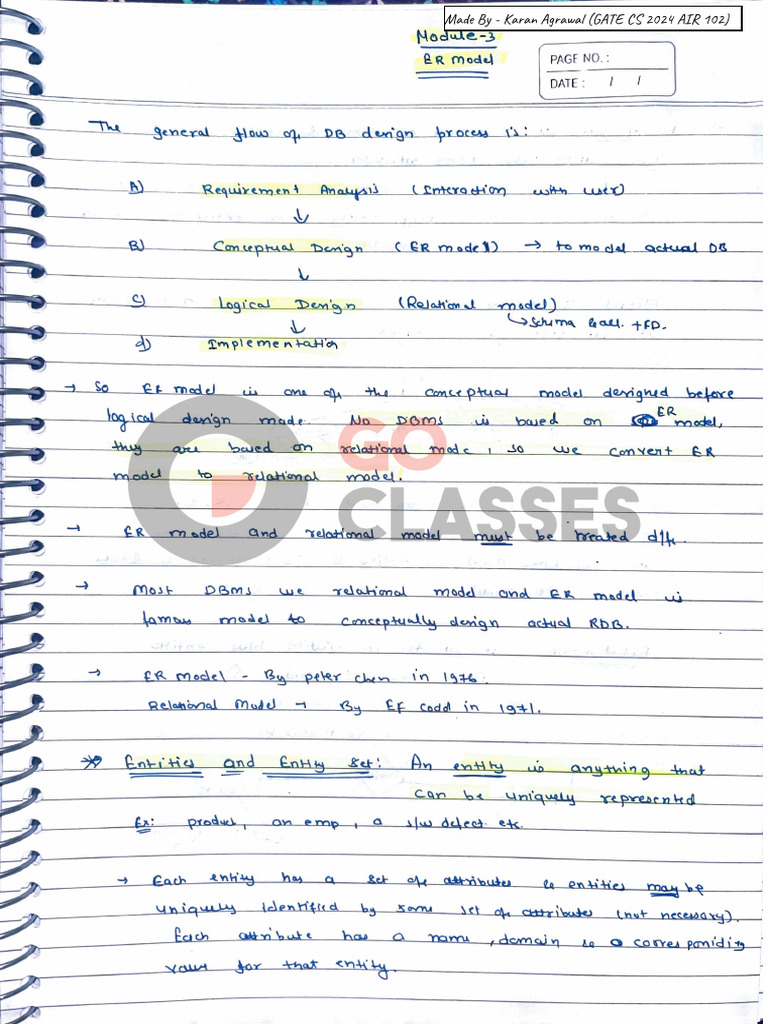 Made By - Karan Agrawal (GATE CS 2024 AIR 102)
Module-3
ER model
PAGE NO.:
DATE: / /
The general flow of DB design process is:
A) Requirement Analysis (Interaction with user)
↓
B) Conceptual Design (ER model) → to model actual DB
↓
c) Logical Design (Relational model)
↳ Schema & all. + FD.
↓
d) Implementation
→ So ER model is one of the conceptual model designed before
logical design made. No DBMS is based on ER model,
they are based on relational mode, so we convert ER
model to relational model.
GO
CLASSES
→ ER model and relational model must be treated diff.
→ Most DBMS use relational model and ER model is
famous model to conceptually design actual RDB.
→ ER model - By peter chen in 1976.
Relational Model → By EF codd in 1971.
Entities and Entity set: An entity is anything that
can be uniquely represented
Ex: product, an emp, a s/w defect etc.
→ Each entity has a set of attributes & entities may be
uniquely identified by some set of attributes (not necessary).
Each attribute has a name, domain & a corresponding
value for that entity.